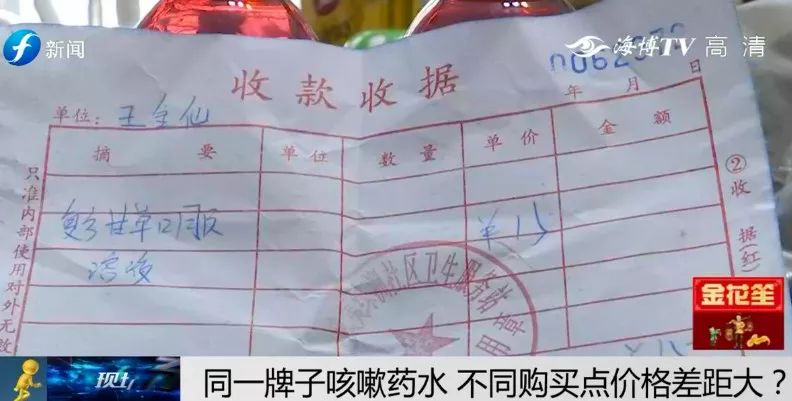 新闻
海博TV 高清
收款收据
年 月 日
单位:王金仙
摘要 单位 数量 单价 金额
复方甘草口服
溶液
区卫生服务站
章
②收据(红)
只准内部使用对外无效
金花笙
现场
同一牌子咳嗽药水 不同购买点价格差距大?